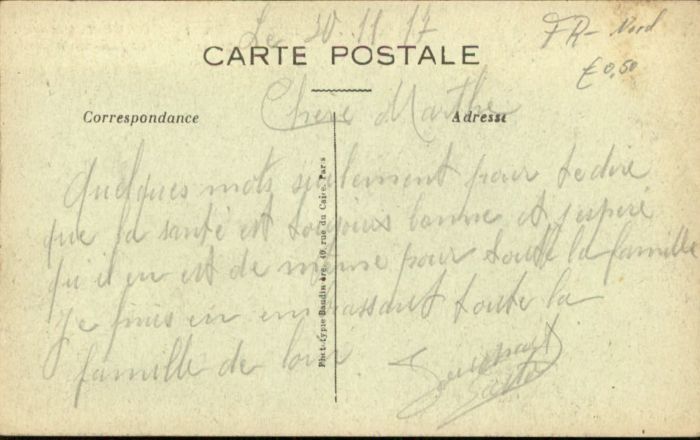 Le 20.11.17
FR- Nord
€ 0,50
CARTE POSTALE
Chere Marthe
Correspondance
Adresse
Quelques mots seulement pour te dire
que la santé est toujours bonne et j'espere
qu'il en est de même pour toute la famille
je finis en embrassant toute la
famille de loin
Phototypie Baudinière, 40, rue du Caire, Paris